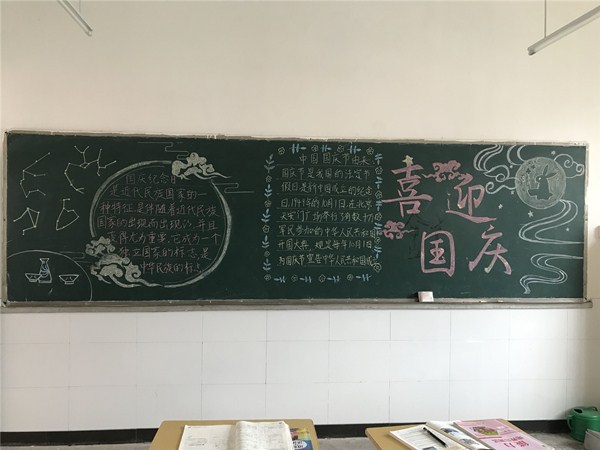 国庆纪念日
是近代民族国家的一
种特征,是伴随着近代民族
国家的出现而出现的,并且
变得尤为重要。它成为一个
独立国家的标志,是
中华民族的标志
中国国庆节由来
国庆节是我国的法定节
假日是新中国成立的纪念
日,1949年10月1日,在北京
天安门广场举行了有数十万
军民参加的中华人民共和国
开国大典
每年10月1日
为国庆节宣告中华人民共和国成
喜迎
国庆